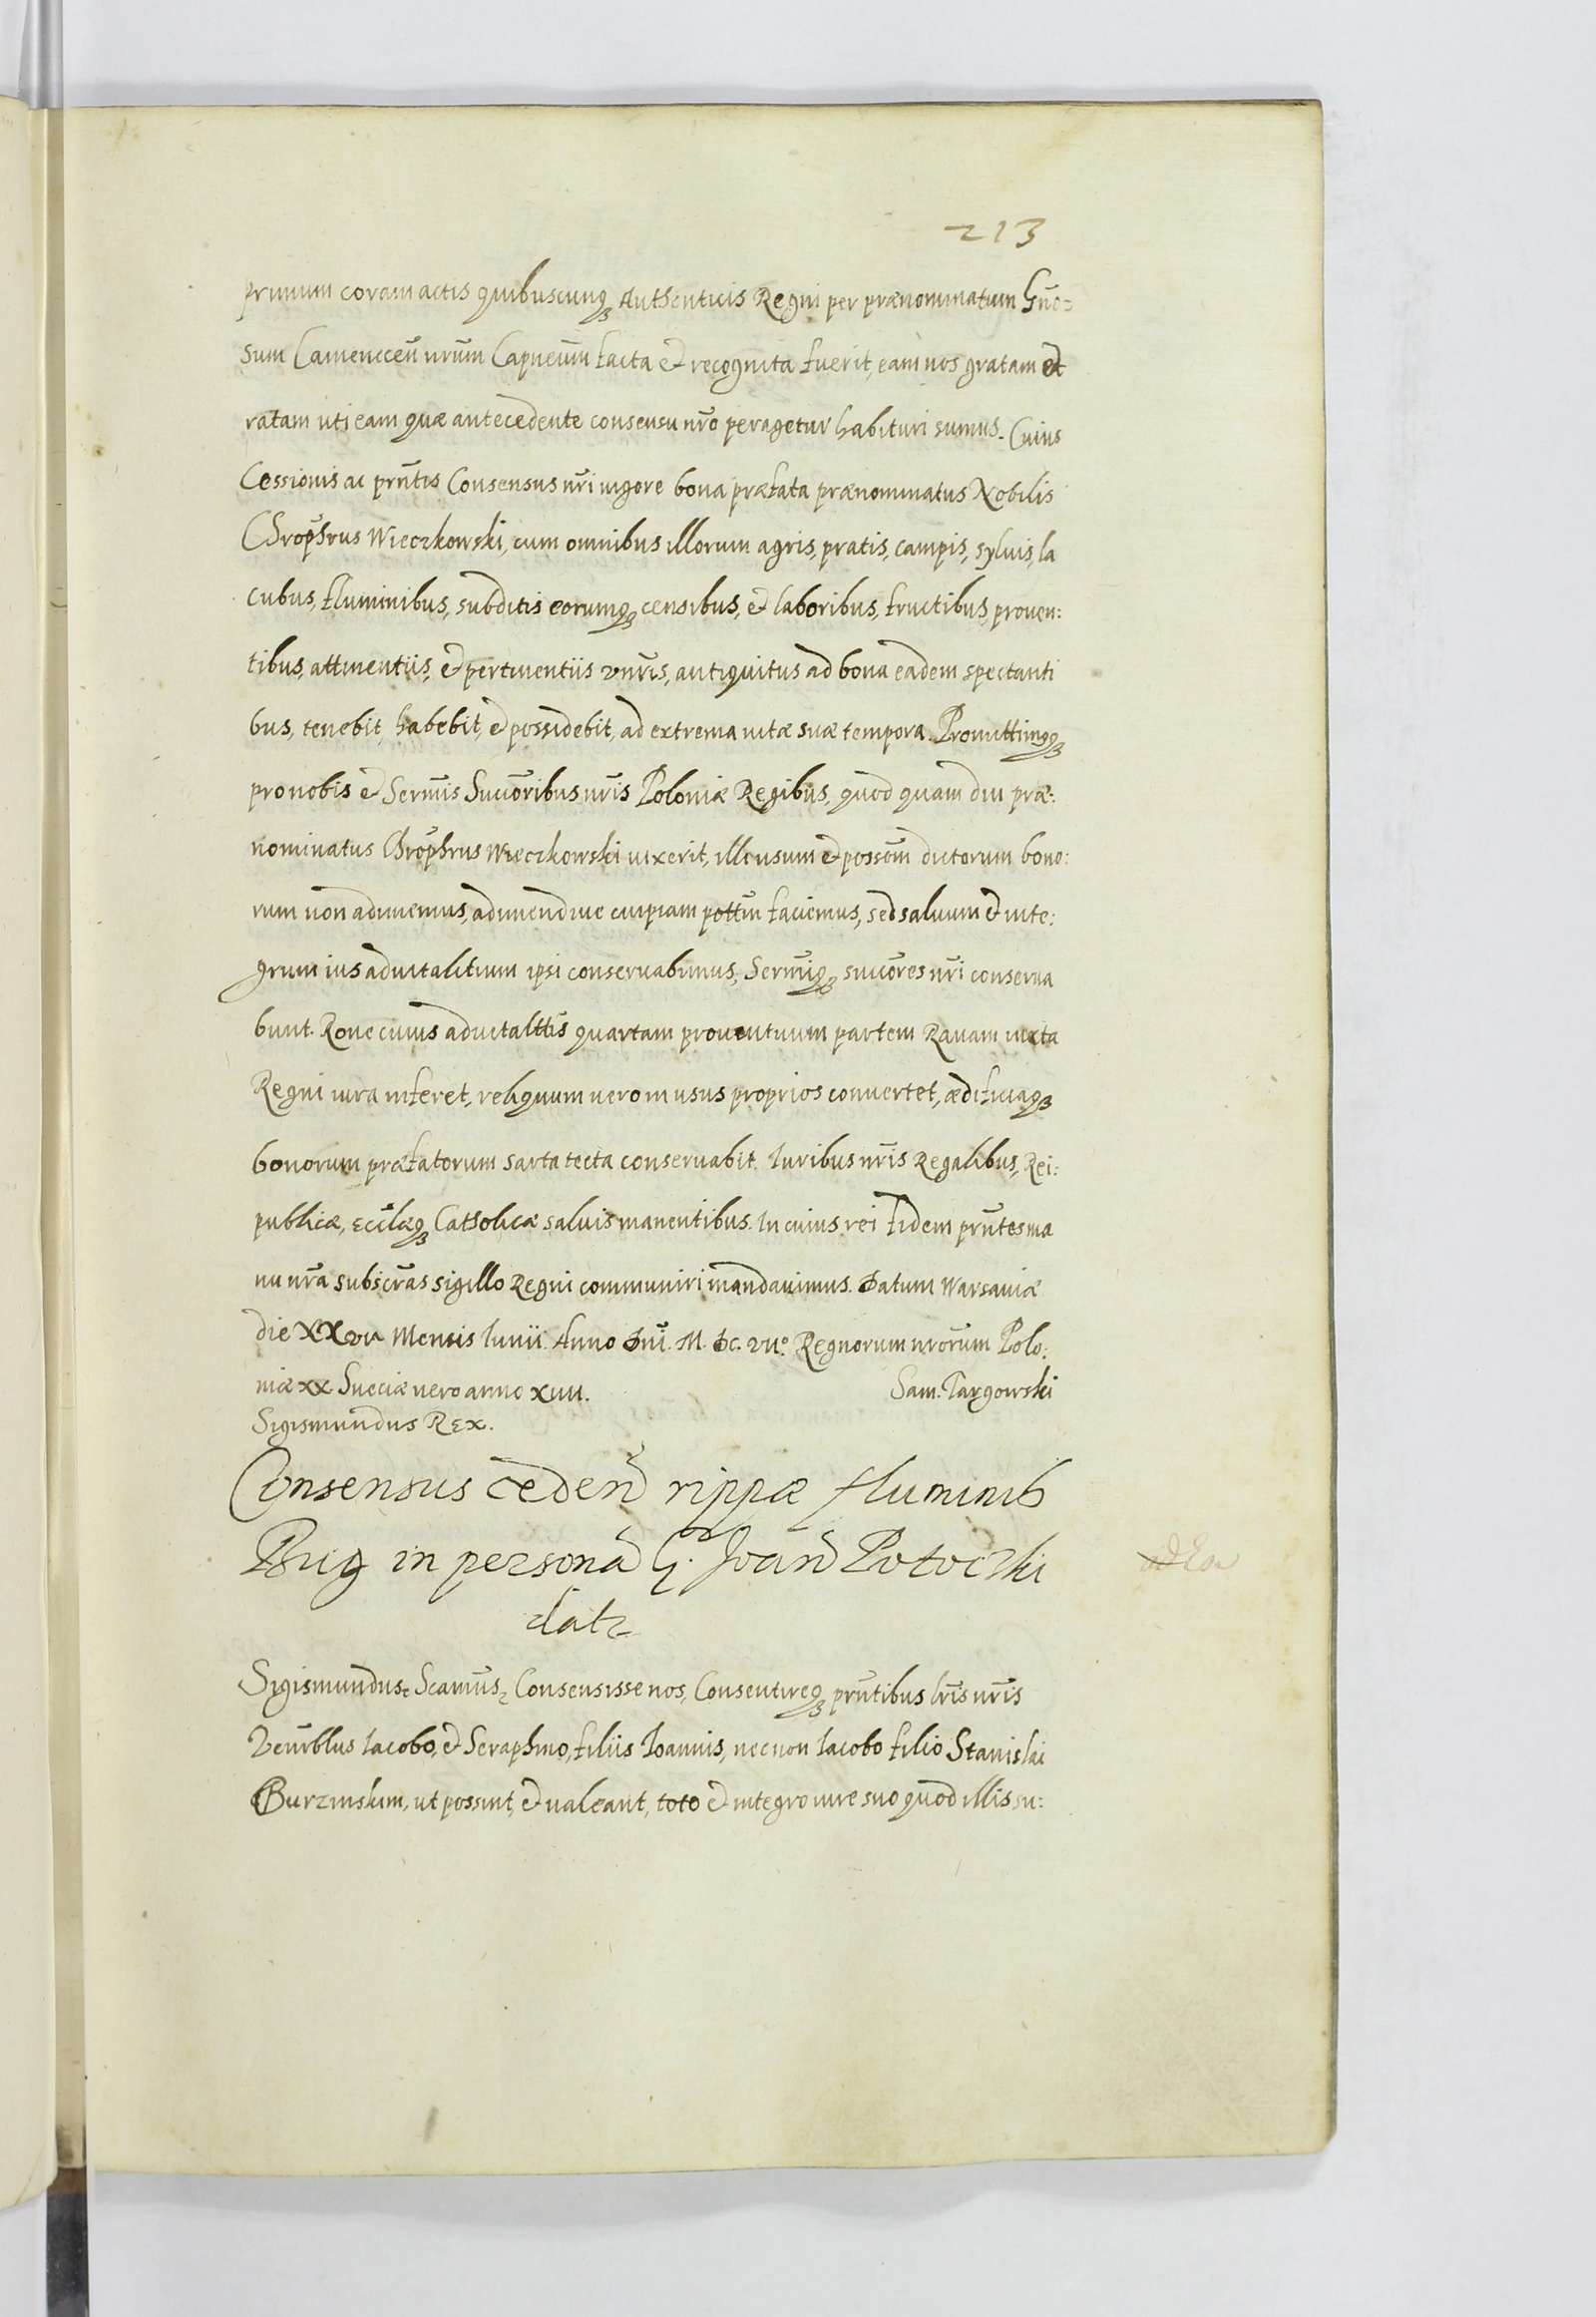 213
primum coram actis quibuscunqȝ Authenticis Regni per prænominatum Gn̄o=
sum Camenecen̄ nrūm Capneūm facta et recognita fuerit, eam nos gratam et
ratam uti eam quæ antecedente consensu nr̄o peragetur habituri sumus. Cuius
Cessionis ac prn̄tis Consensus nr̄i uigore bona præfata prænominatus Nobilis
Chroph̄rus Wieczkowski, cum omnibus illorum agris, pratis, campis, syluis, la
cubus, fluminibus, subditis eorumqȝ censibus, et laboribus, fructibus, prouen:
tibus, attinentiis, et pertinentiis vnr̄is, antiquitus ad bona eadem spectanti
bus, tenebit, habebit, et possidebit, ad extrema uitæ suæ tempora. Promittimqȝ
pro nobis et Serm̄is Succōribus nr̄is Poloniæ Regibus, quod quam diu præ:
nominatus Chroph̄rus Wieczkowski uixerit, illi usum et possōm dictorum bono:
rum non adimemus, adimendiue cuipiam pottm̄ faciemus, sed saluum et inte:
grum ius aduitalitium ipsi conseruabimus, Serm̄iqȝ succōres nr̄i conserua
bunt. Rone cuius aduitalttīs quartam prouentuum partem Rauam iuxta
Regni iura inferet, reliquum uero in usus proprios conuertet, ædificiaqȝ
bonorum præfatorum sarta tecta conseruabit. Iuribus nr̄is Regalibus, Rei:
publicæ, Eccl̄æqȝ Catholicæ saluis manentibus. In cuius rei fidem prn̄tes ma
nu nr̄a subscr̄as sigillo Regni communiri mandauimus. Datum Warsauiæ
die XXvii Mensis Iunii. Anno Dn̄i. M. Dc. vii° Regnorum nrōrum Polo:
niæ xx Sueciæ uero anno xiiii. Sam. Targowski
Sigismundus Rex.
Consensus ceden̄ rippæ fluminis
Bug in personā G. Joan̄ Potoczki
dat
Sigismundus Scamūs Consensisse nos, Consentireqȝ prn̄tibus lr̄is nr̄is
Venr̄blus Iacobo, et Seraphino, filiis Ioannis, necnon Iacobo filio Stanislai
Burzinskim, ut possint, et ualeant, toto et integro iure suo quod illis su: